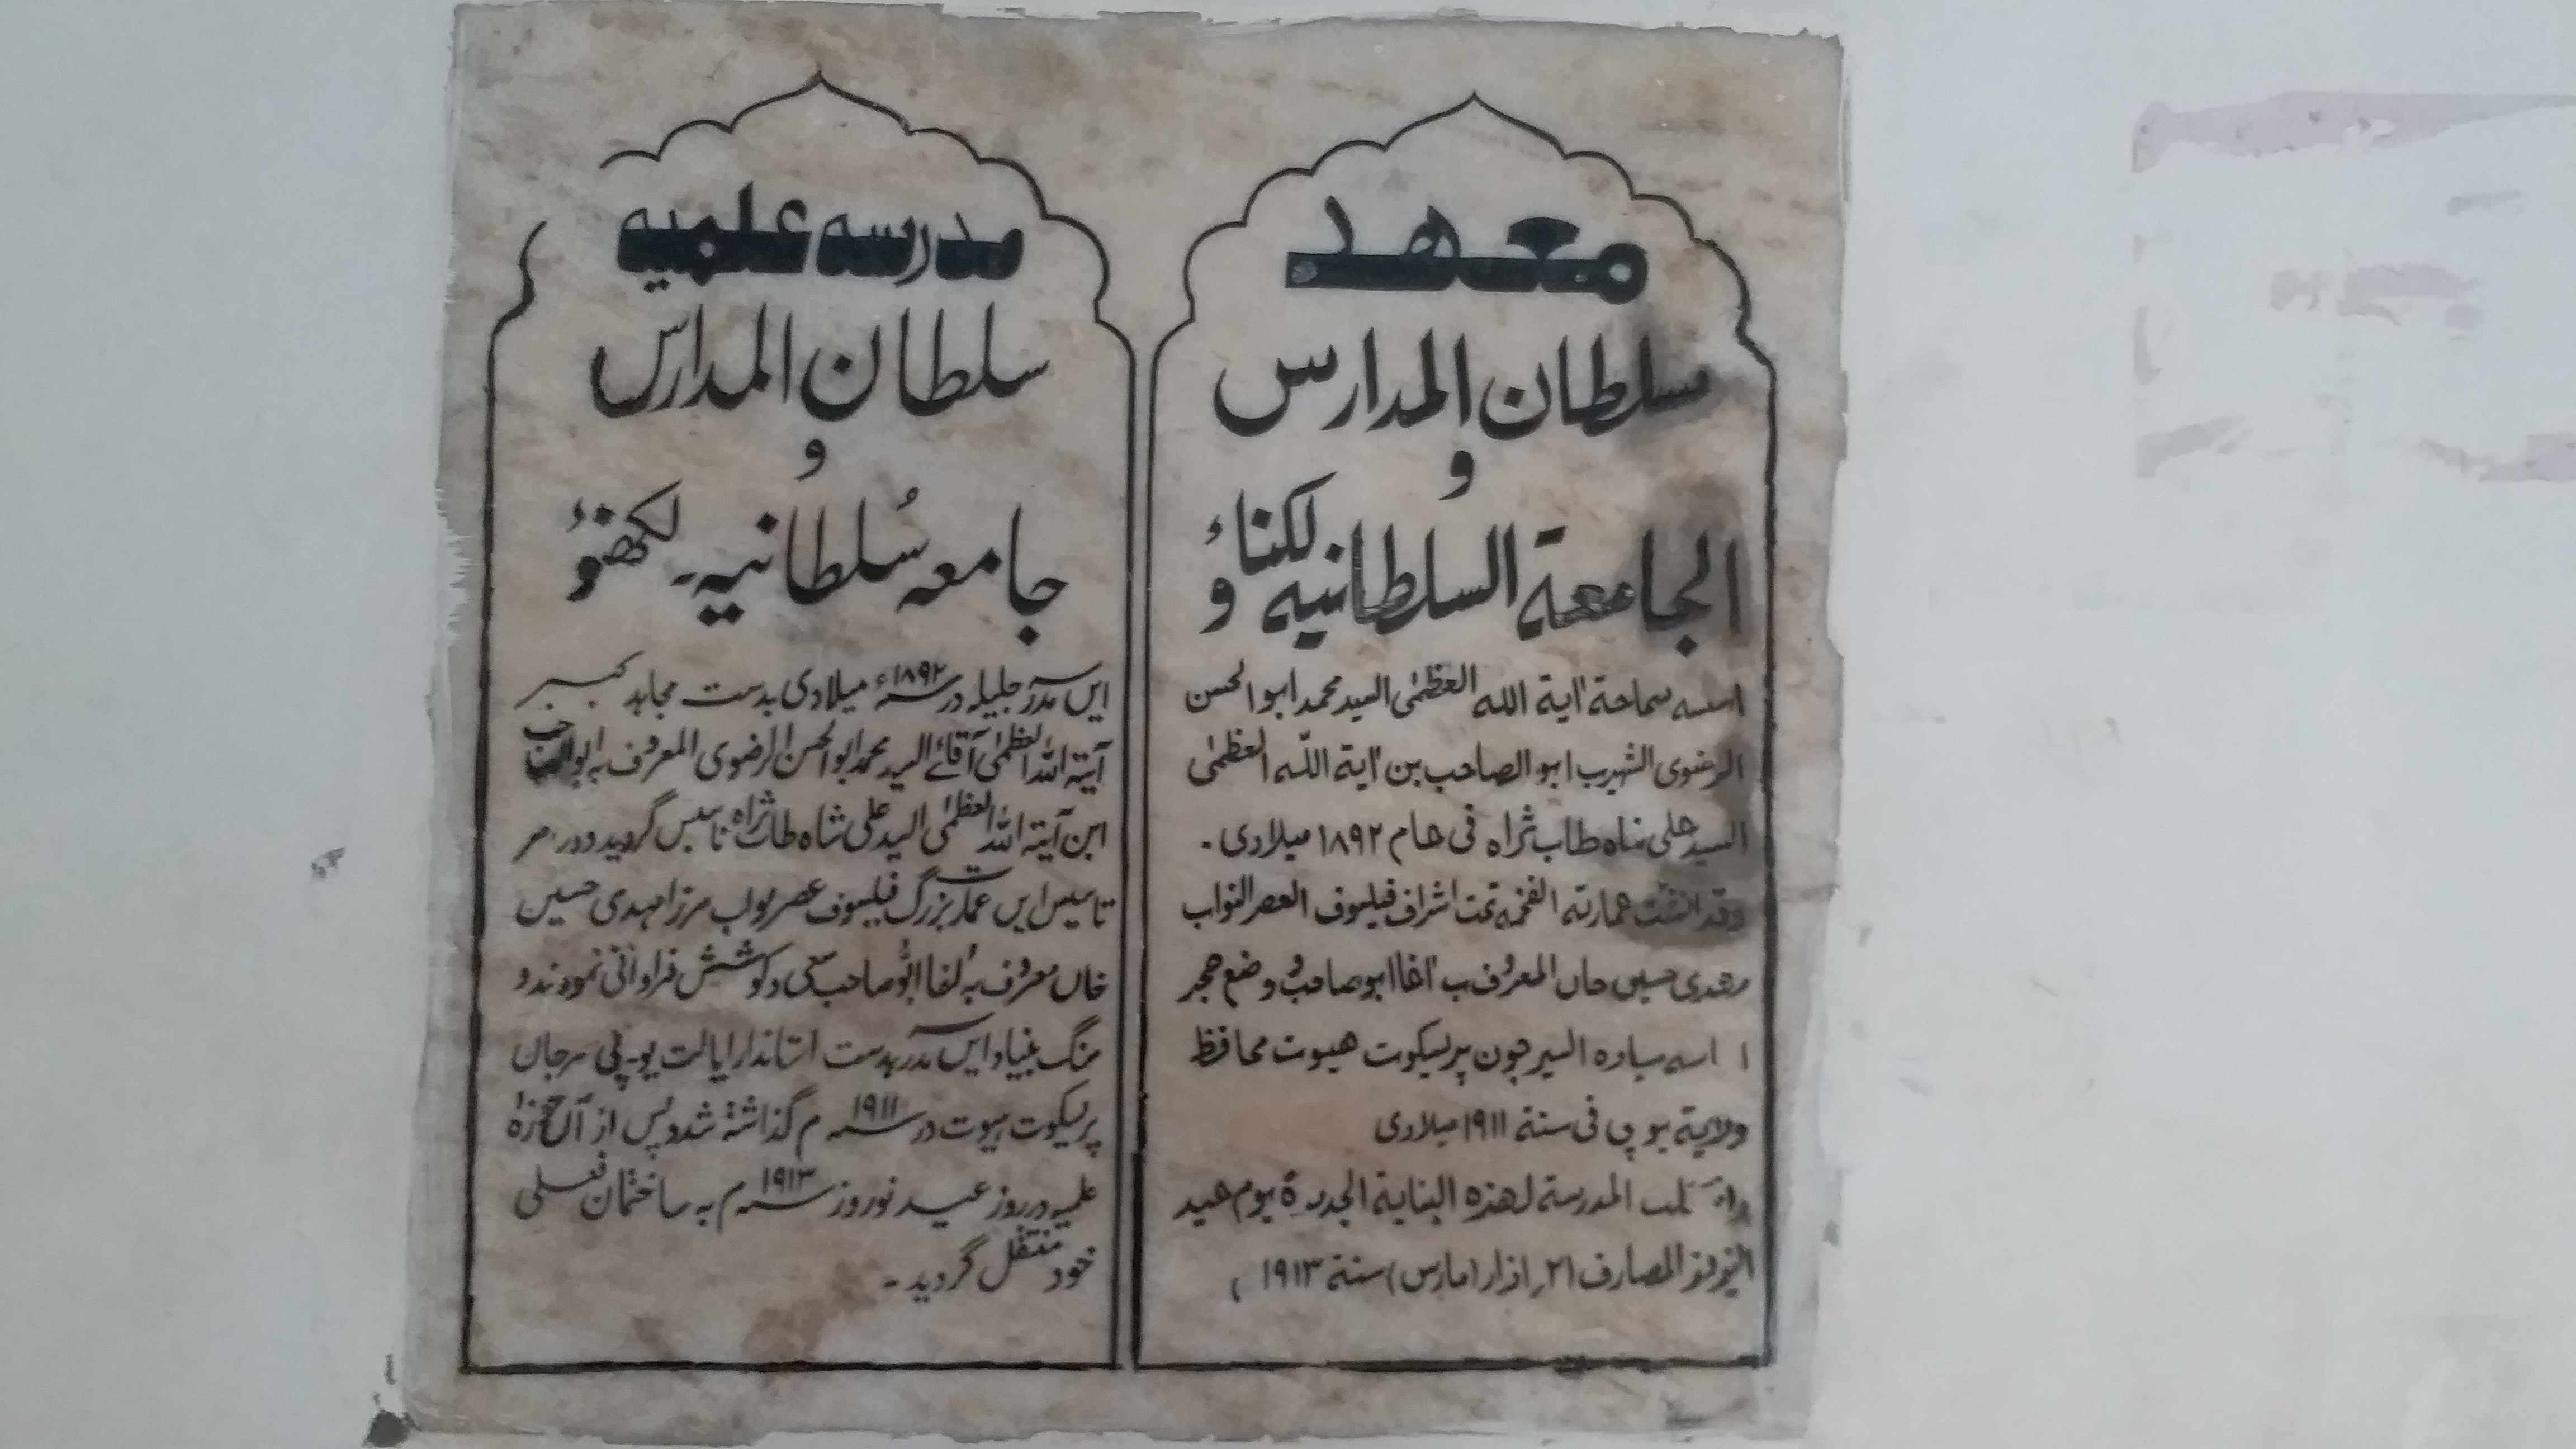 معهد
سلطان المدارس
و
الجامعة السلطانیه لکناؤ
اسسه سماحة آیة الله العظمٰی السید محمد ابوالحسن
الرضوی الشهیر ب ابو الصاحب بن آیة الله العظمٰی
السید علی شاه طاب ثراه فی عام ۱۸۹۲ میلادی۔
وقد انشئت عمارته الفخمه تحت اشراف فیلسوف العصر النواب
مهدی حسین خان المعروف ب آغا ابو صاحب و وضع حجر
اسه سیاده السیر جون پریسکوت هیوت محافظ
ولایة یو پی فی سنة ۱۹۱۱ میلادی
المدرسة لهذه البنایة الجدیدة یوم عید
النوروز المصارف ۲۱؍ اذار (مارس) سنة ۱۹۱۳
مدرسه علمیه
سلطان المدارس
و
جامعه سُلطانیہ۔ لکھنؤ
ایں مدرسہ جلیلہ در سنہ ۱۸۹۲ء میلادی بدست مجاہد کبیر
آیتہ اللہ العظمٰی آقائے السید محمد ابوالحسن الرضوی المعروف بہ ابو صاحب
ابن آیتہ اللہ العظمٰی السید علی شاہ طاب ثراہ تاسیس گردید و در امر
تاسیس ایں عمارت بزرگ فیلسوف عصر نواب مرزا مہدی حسین
خاں معروف بہ آغا ابّو صاحب سعی و کوشش فراوانی نمودند و
سنگ بنیاد ایں مدرسہ بدست استاندار ایالت یو۔پی سرجان
پریسکوت ہیوت در سنہ ۱۹۱۱ م گذاشتہ شد و پس از آں حوزہ
علمیہ در روز عید نوروز سنہ ۱۹۱۳ م بہ ساختمان فعلی
خود منتقل گردید۔